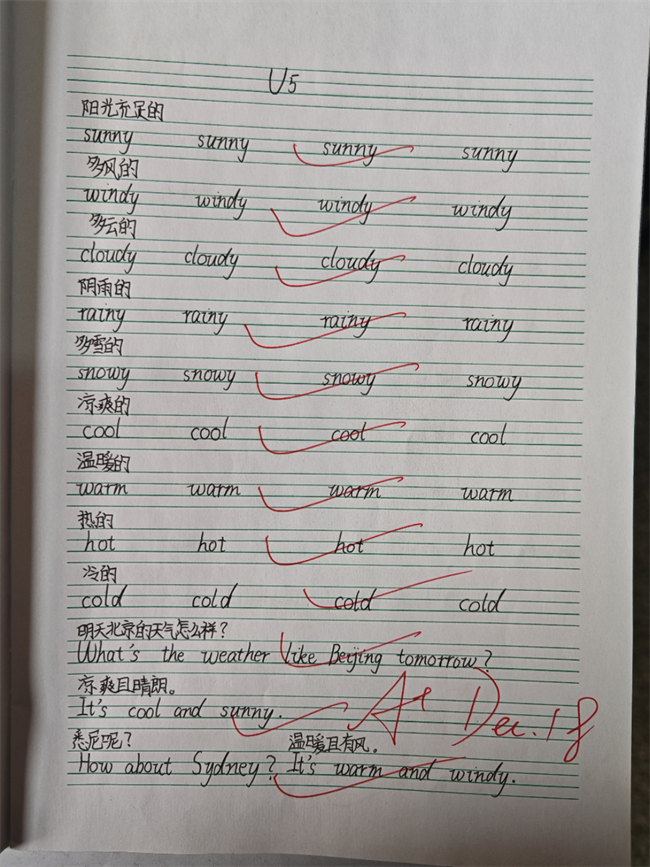 U5
阳光充足的
sunny sunny sunny sunny
多风的
windy windy windy windy
多云的
cloudy cloudy cloudy cloudy
阴雨的
rainy rainy rainy rainy
多雪的
snowy snowy snowy snowy
凉爽的
cool cool cool cool
温暖的
warm warm warm warm
热的
hot hot hot hot
冷的
cold cold cold cold
明天北京的天气怎么样?
What's the weather like Beijing tomorrow?
凉爽且晴朗。
It's cool and sunny. A+ Dec. 18
悉尼呢? 温暖且有风。
How about Sydney? It's warm and windy.